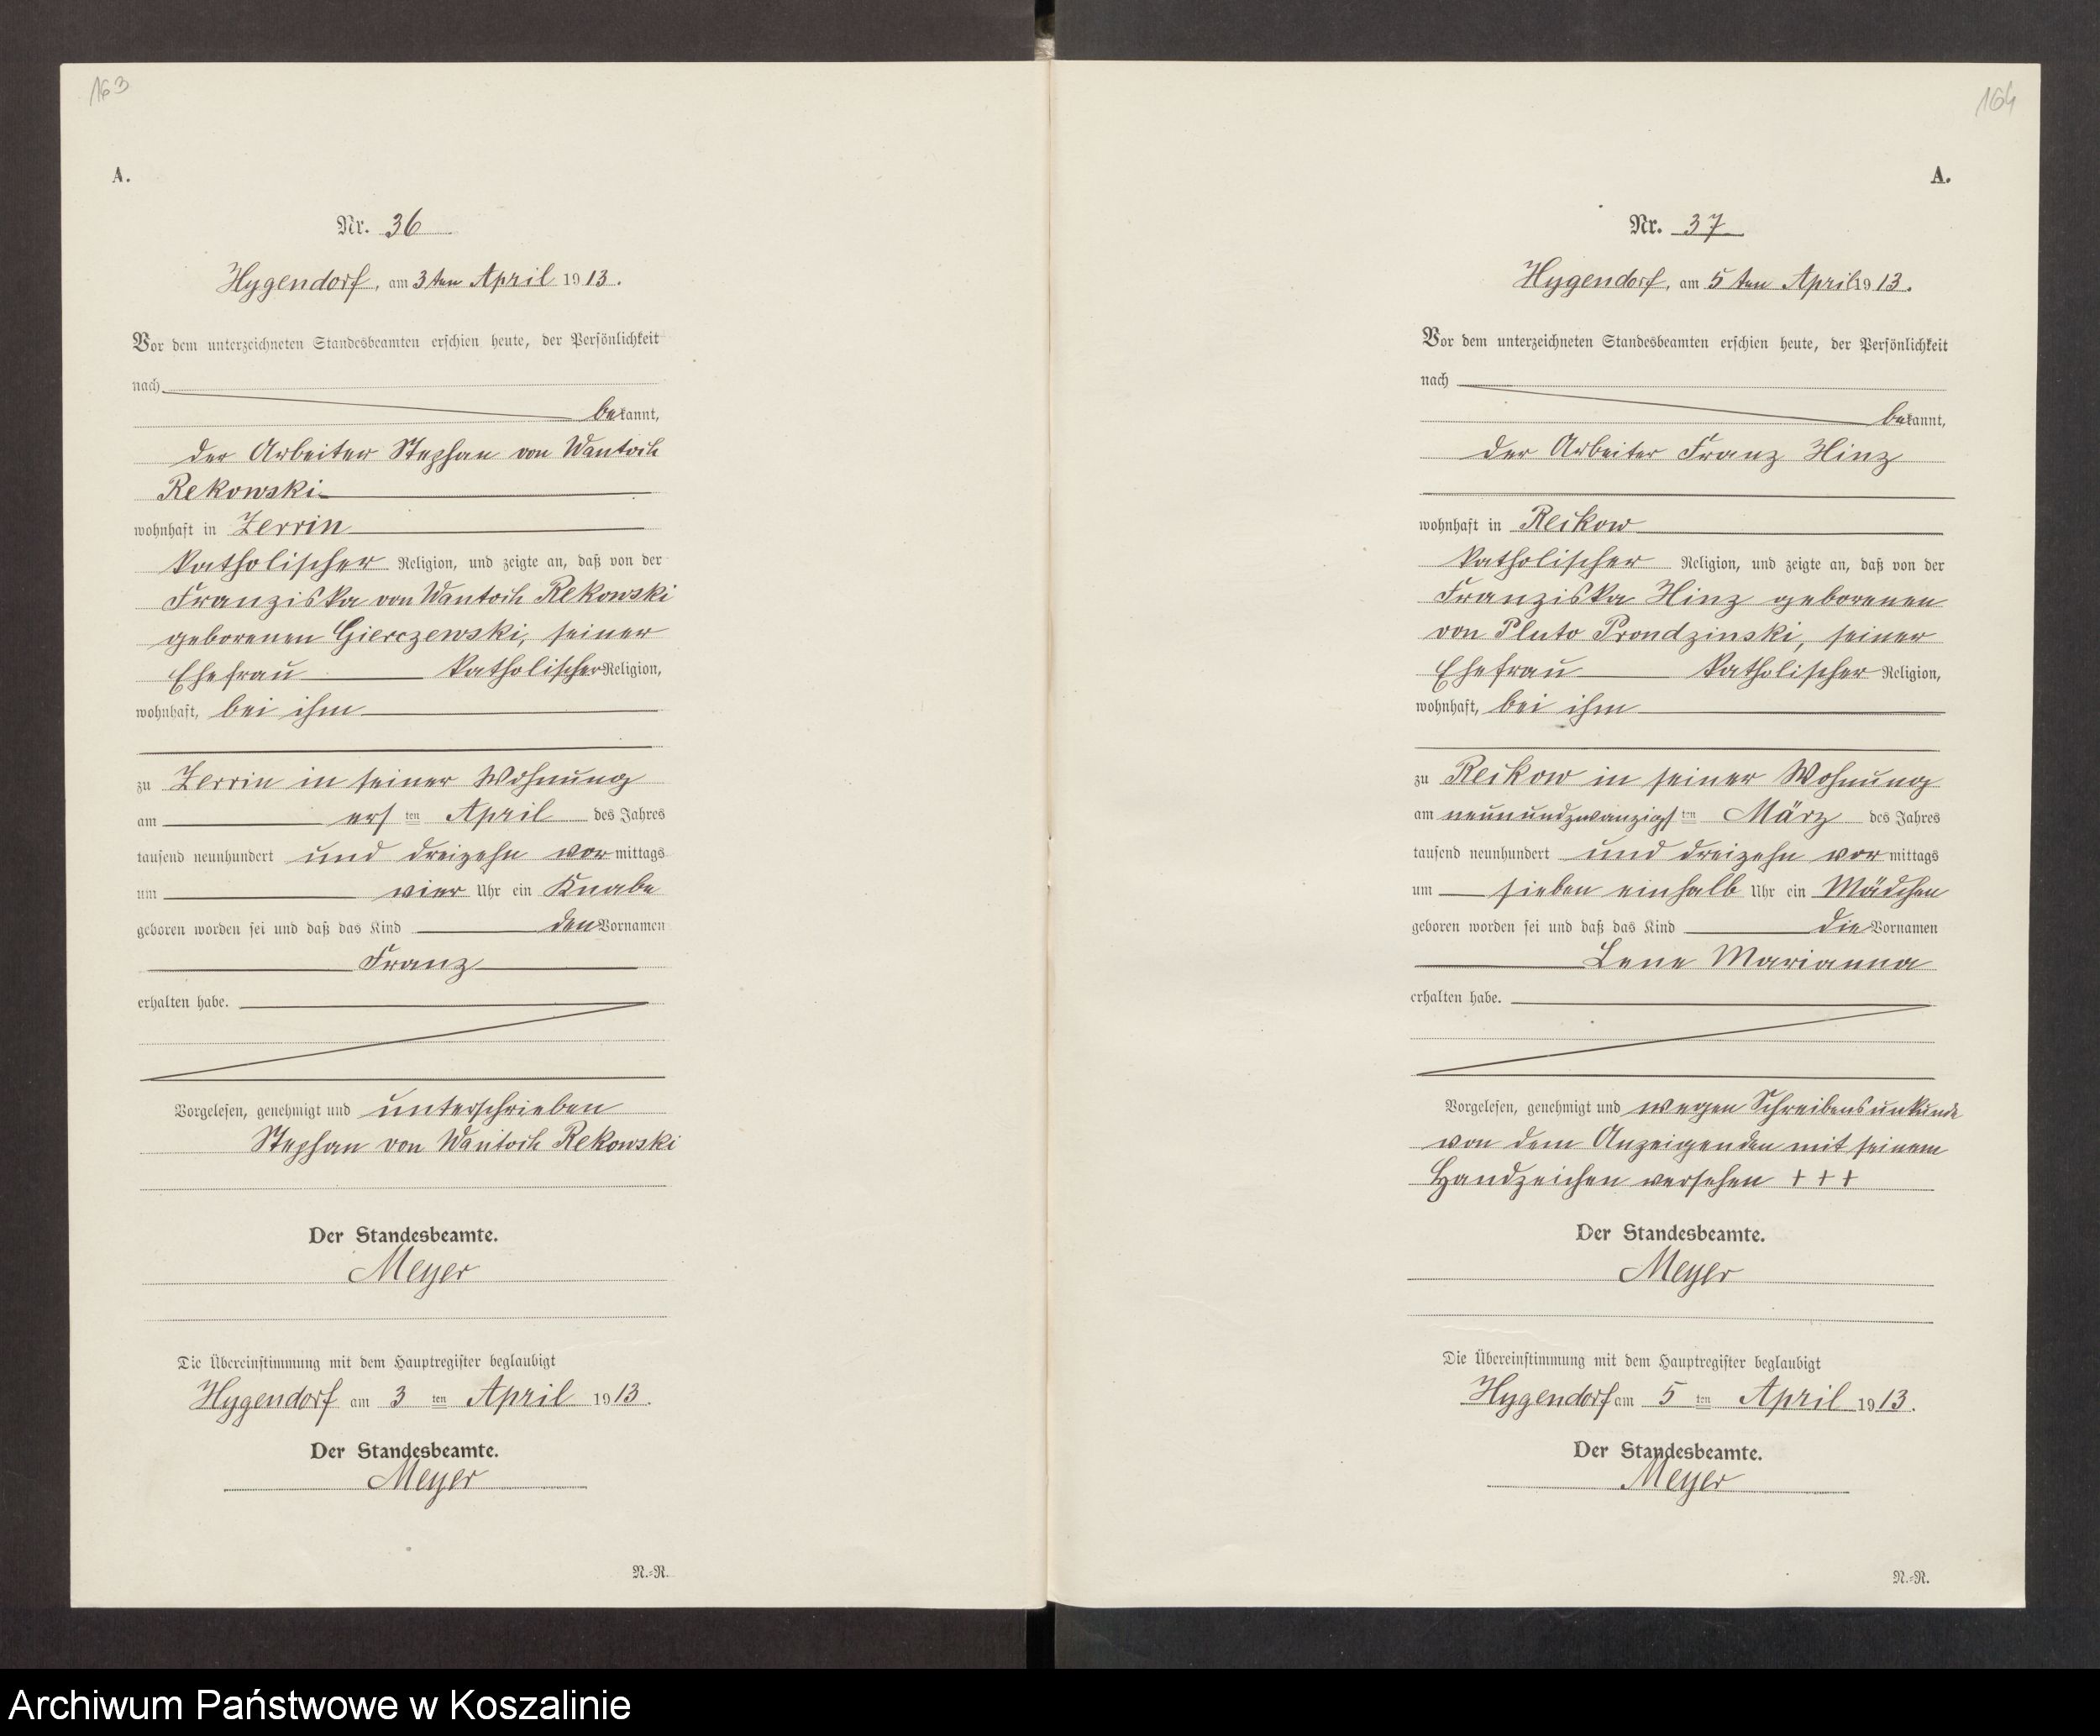 163
A.
Nr. 36
Hygendorf, am 3ten April 1913.
Vor dem unterzeichneten Standesbeamten erschien heute, der Persönlichkeit
nach
bekannt,
der Arbeiter Stephan von Wantoch
Rekowski
wohnhaft in Zerrin
katholischer Religion, und zeigte an, daß von der
Franziska von Wantoch Rekowski
geborenen Gierczewski, seiner
Ehefrau katholischer Religion,
wohnhaft, bei ihm
zu Zerrin in seiner Wohnung
am ersten April des Jahres
tausend neunhundert und dreizehn vormittags
um vier Uhr ein Knabe
geboren worden sei und daß das Kind den Vornamen
Franz
erhalten habe.
Vorgelesen, genehmigt und unterschrieben
Stephan von Wantoch Rekowski
Der Standesbeamte.
Meyer
Die Übereinstimmung mit dem Hauptregister beglaubigt
Hygendorf am 3 ten April 1913.
Der Standesbeamte.
Meyer
N.-R.
164
A.
Nr. 37
Hygendorf, am 5ten April 1913.
Vor dem unterzeichneten Standesbeamten erschien heute, der Persönlichkeit
nach
bekannt,
der Arbeiter Franz Hinz
wohnhaft in Reikow
katholischer Religion, und zeigte an, daß von der
Franziska Hinz geborenen
von Pluto Prondzinski, seiner
Ehefrau katholischer Religion,
wohnhaft, bei ihm
zu Reikow in seiner Wohnung
am neunundzwanzigsten März des Jahres
tausend neunhundert und dreizehn vormittags
um sieben einhalb Uhr ein Mädchen
geboren worden sei und daß das Kind die Vornamen
Lene Marianna
erhalten habe.
Vorgelesen, genehmigt und wegen Schreibensunkunde
von dem Anzeigenden mit seinem
Handzeichen versehen + + +
Der Standesbeamte.
Meyer
Die Übereinstimmung mit dem Hauptregister beglaubigt
Hygendorf am 5 ten April 1913.
Der Standesbeamte.
Meyer
N.-R.
Archiwum Państwowe w Koszalinie